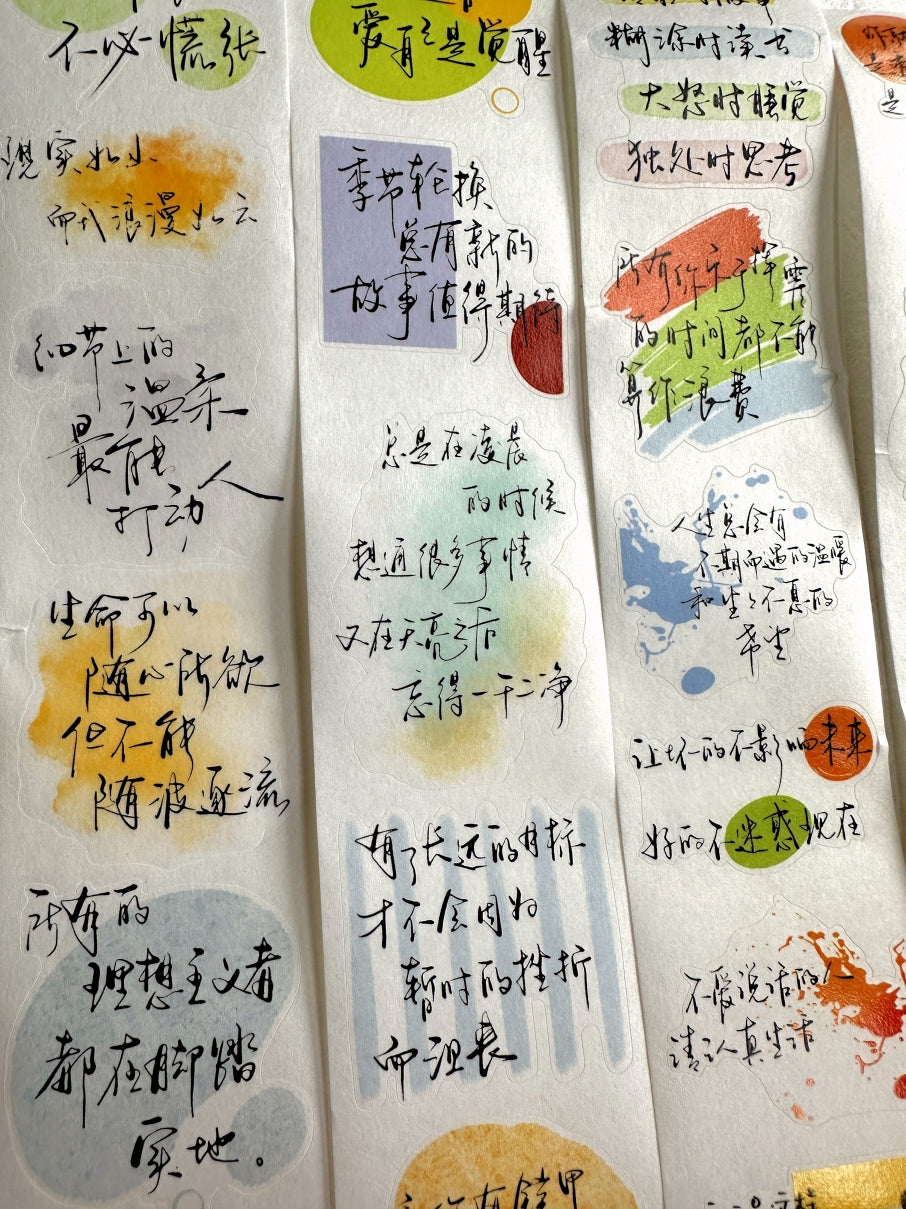 不必慌张
现实如水
而我浪漫如云
细节上的
温柔
最能
打动人
生命可以
随心所欲
但不能
随波逐流
所有的
理想主义者
都在脚踏
实地。
爱自己是觉醒
季节轮换
总有新的
故事值得期待
总是在凌晨
的时候
想通很多事情
又在天亮之后
忘得一干二净
有了长远的目标
才不会因为
暂时的挫折
而沮丧
有铠甲
糊涂时读书
大怒时睡觉
独处时思考
所有你乐于挥霍
的时间都不能
算作浪费
人生总会有
不期而遇的温暖
和生生不息的
希望
让坏的不影响未来
好的不迷惑现在
不爱说话的人
请认真生活
是